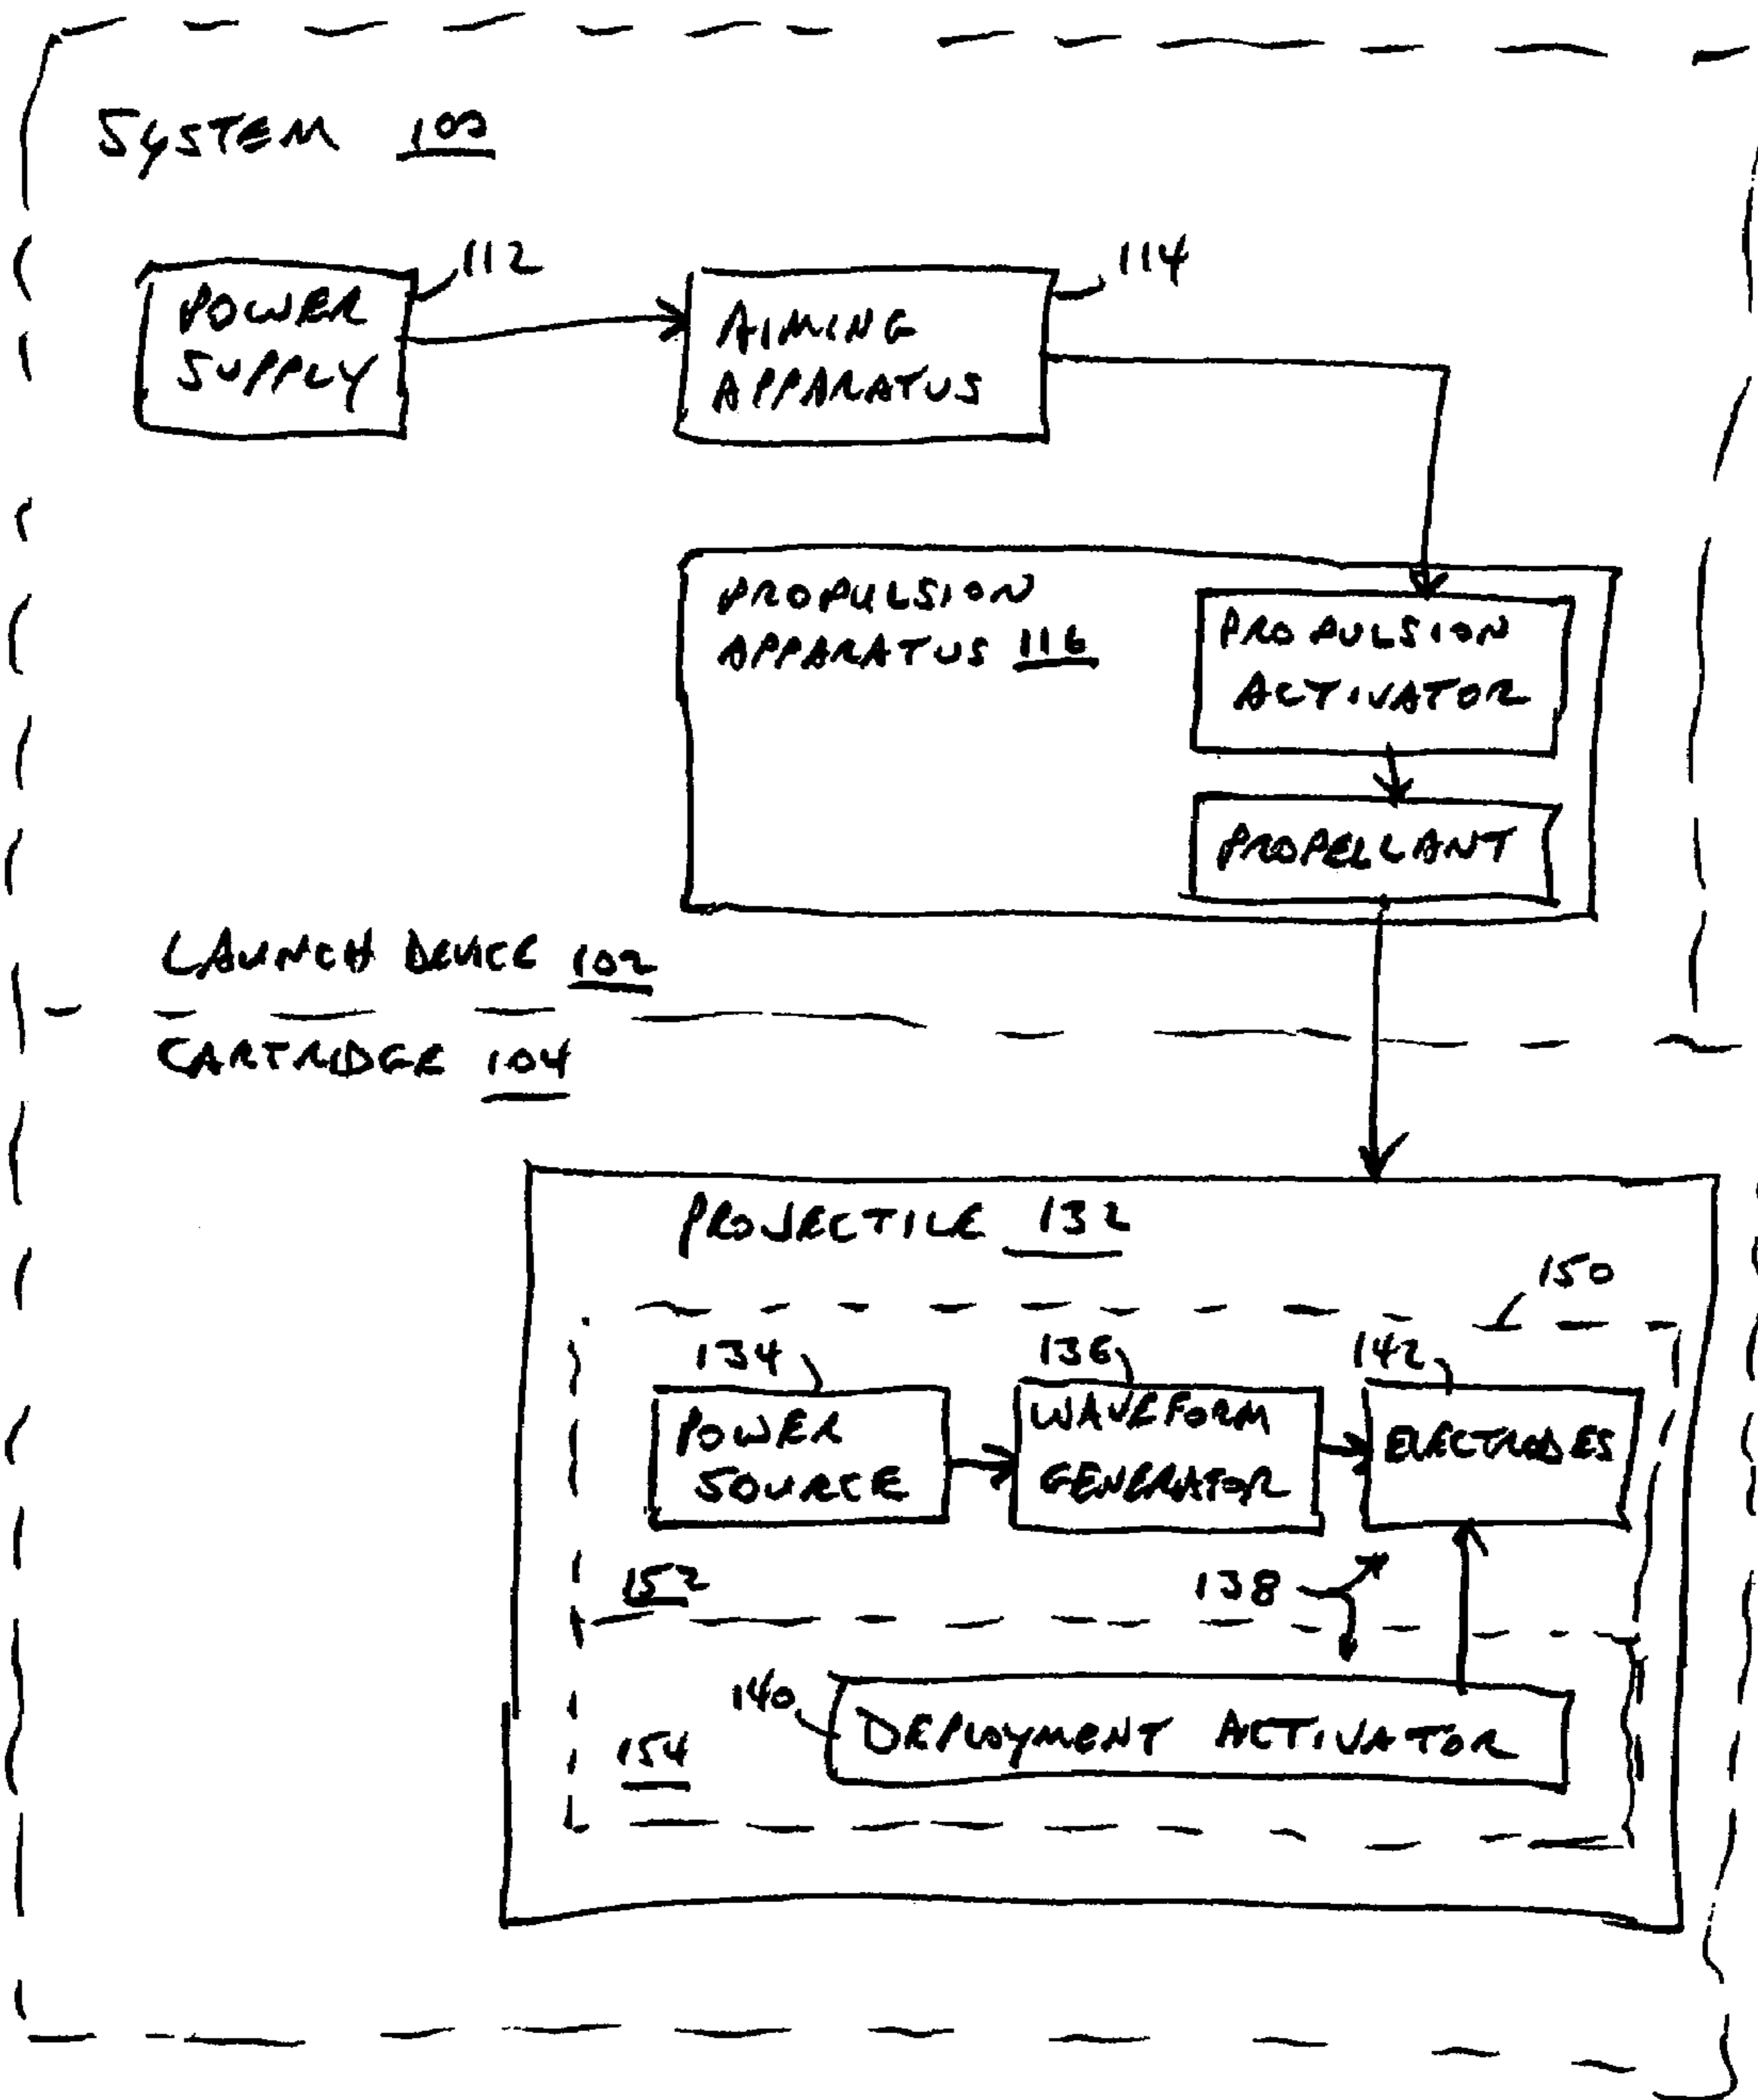 SYSTEM 100
112
114
POWER
SUPPLY
AIMING
APPARATUS
PROPULSION
APPARATUS 116
PROPULSION
ACTIVATOR
PROPELLANT
LAUNCH DEVICE 102
CARTRIDGE 104
PROJECTILE 132
150
134
136
142
POWER
SOURCE
WAVEFORM
GENERATOR
ELECTRODES
152
138
140
DEPLOYMENT ACTIVATOR
154